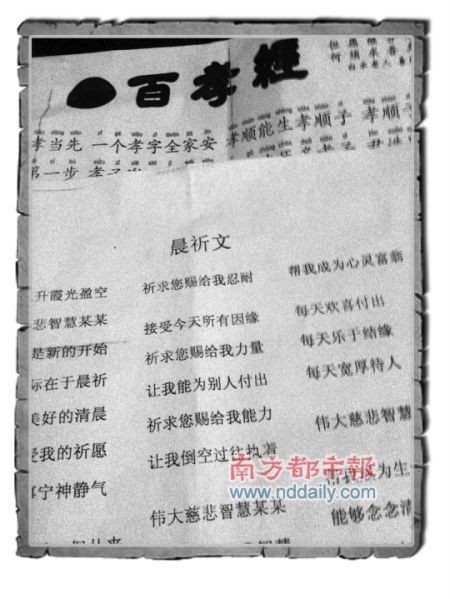 百孝經
孝当先 一个孝字全家安
孝顺能生孝顺子 孝顺
第一步
晨祈文
升霞光盈空
悲智慧某某
是新的开始
际在于晨祈
美好的清晨
受我的祈愿
宁神静气
祈求您赐给我忍耐
接受今天所有因缘
祈求您赐给我力量
让我能为别人付出
祈求您赐给我能力
让我倒空过往执着
伟大慈悲智慧某某
帮我成为心灵富翁
每天欢喜付出
每天乐于结缘
每天宽厚待人
伟大慈悲智慧
我成为生
能够念念清
南方都市報
www.nddaily.com